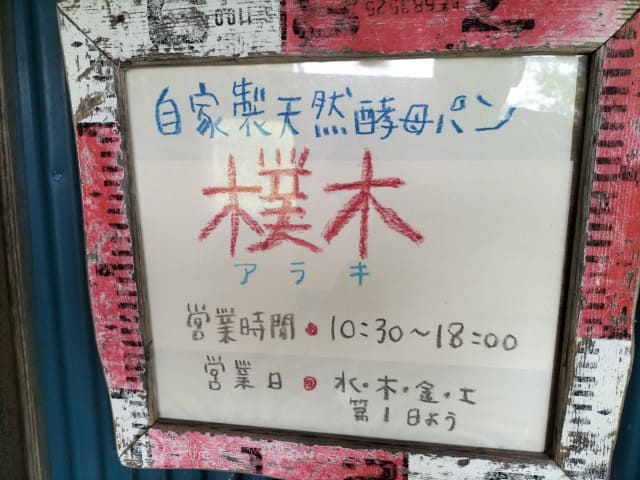 自家製天然酵母パン
樸木
アラキ
営業時間・10:30〜18:00
営業日・水・木・金・土
第1日よう